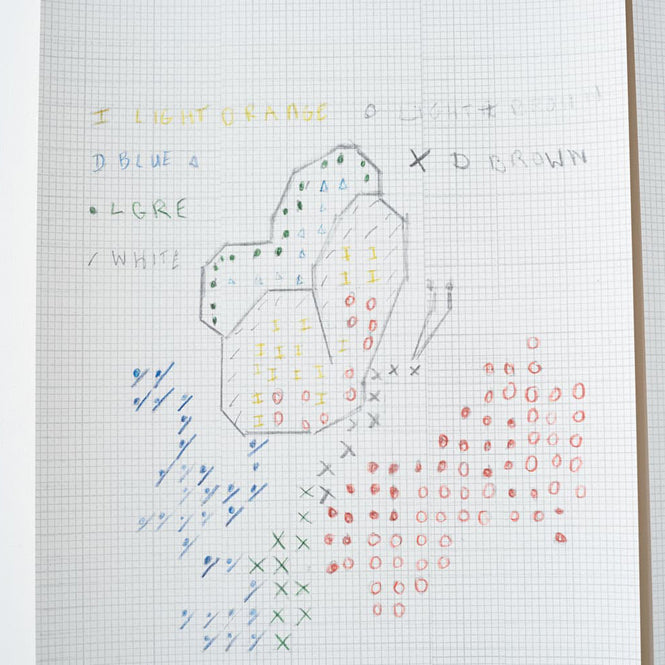 I LIGHT ORANGE O LIGHT
D BLUE △ X D BROWN
• L GRE
/ WHITE